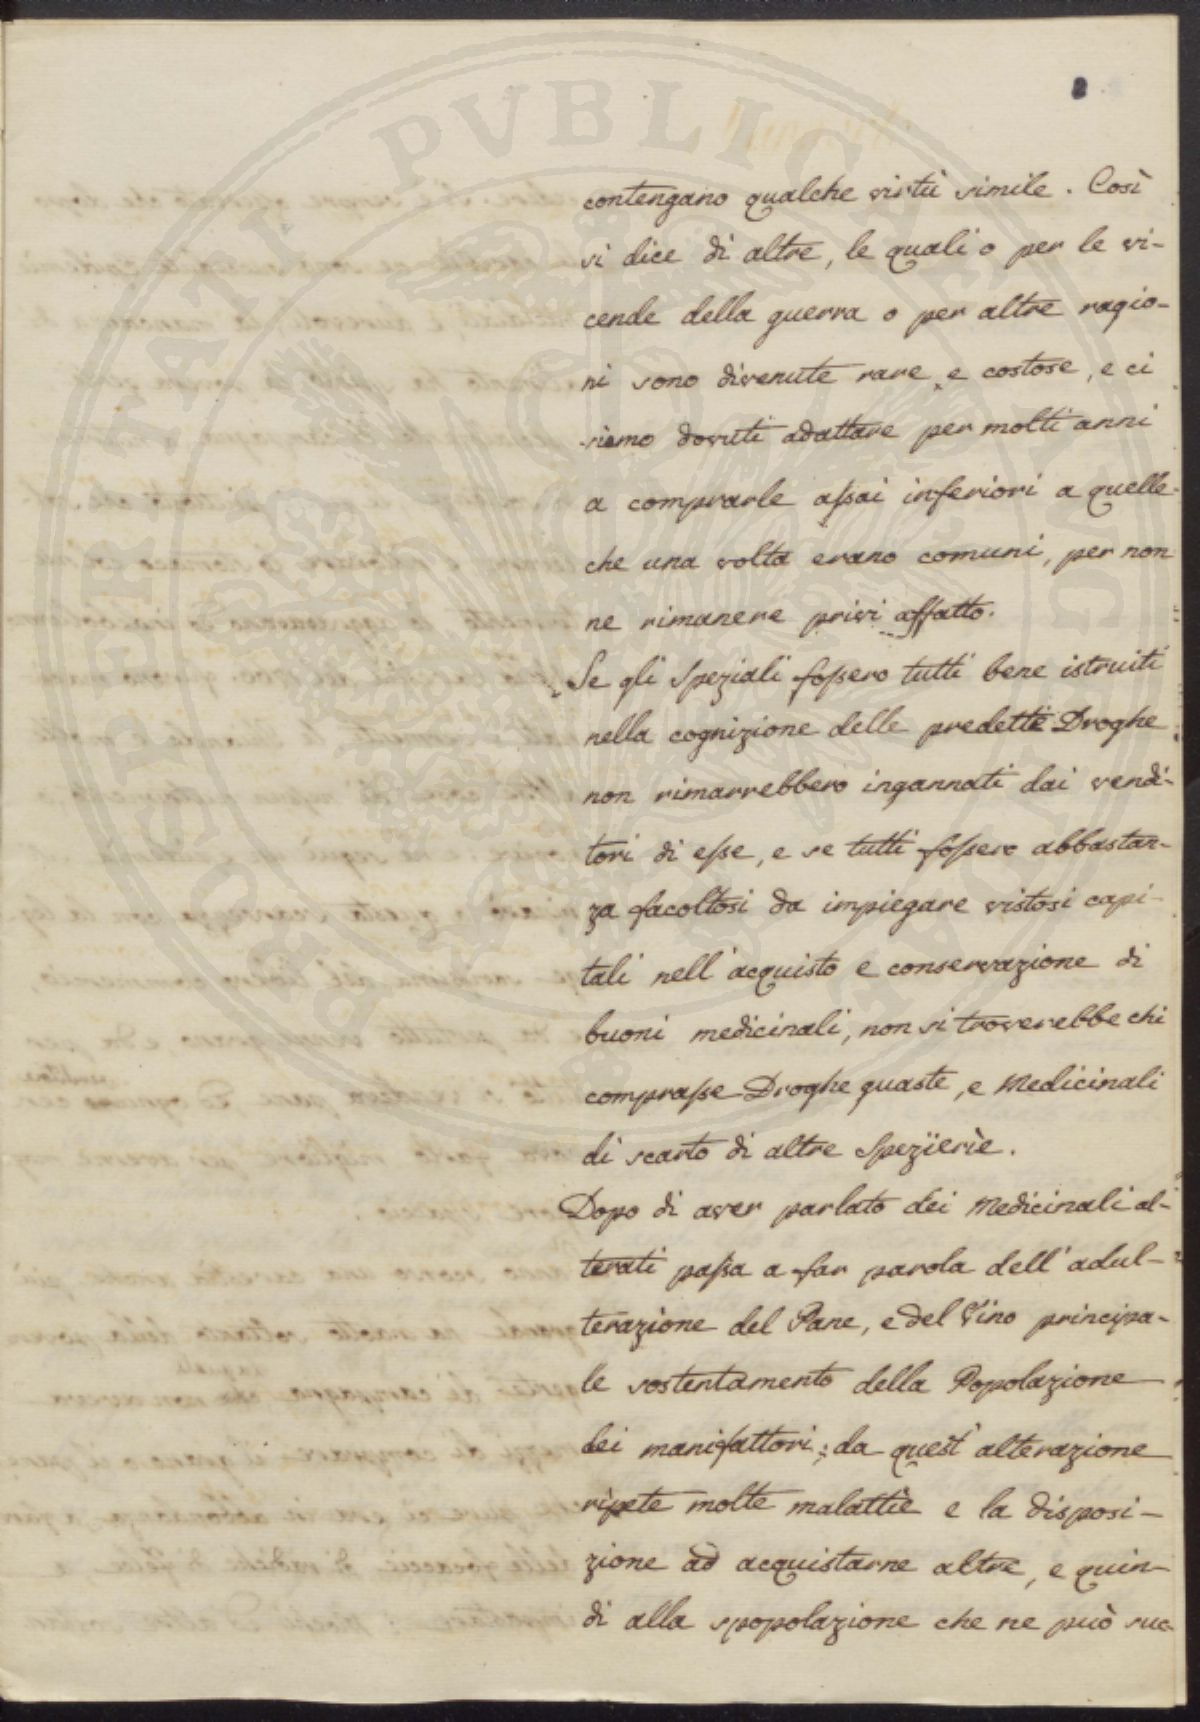 contengano qualche virtù simile. Così
si dice di altre, le quali o per le vi-
cende della guerra o per altre ragio-
ni sono divenute rare, e costose, e ci
siamo dovuti adattare per molti anni
a comprarle assai inferiori a quelle
che una volta erano comuni, per non
ne rimanere privi affatto.
Se gli Speziali fossero tutti bene istruiti
nella cognizione delle predette Droghe
non rimarrebbero ingannati dai vendi-
tori di esse, e se tutti fossero abbastan-
za facoltosi da impiegare vistosi capi-
tali nell'acquisto e conservazione di
buoni medicinali, non si troverebbe chi
comprasse Droghe guaste, e Medicinali
di scarto di altre Spezierìe.
Dopo di aver parlato dei Medicinali al-
terati passa a far parola dell'adul-
terazione del Pane, e del Vino principa-
le sostentamento della Popolazione
dei manifattori; da quest'alterazione
ripete molte malattìe e la disposi-
zione ad acquistarne altre, e quin-
di alla spopolazione che ne può suc-